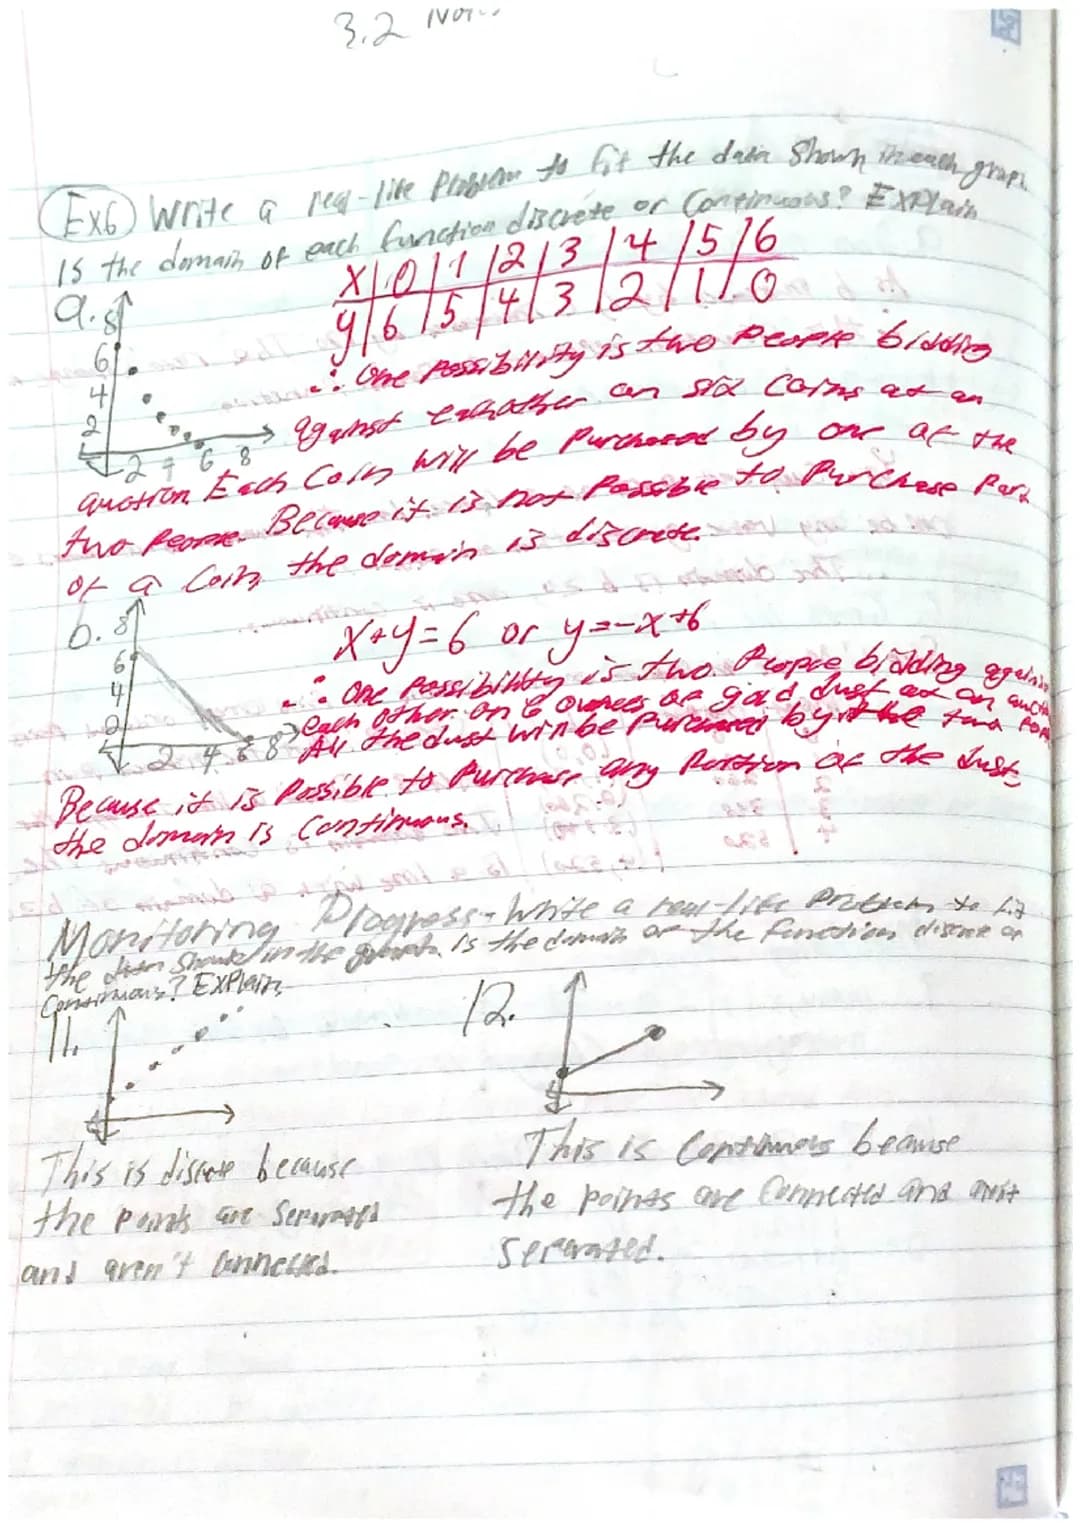 3.2 Notes
Ex6) Write a real-life Problem to fit the data Shown in each graph.
Is the domain of each function discrete or Continuous? Explain
a.
x | 0 | 1 | 2 | 3 | 4 | 5 | 6
y | 6 | 5 | 4 | 3 | 2 | 1 | 0
8
6
4
2
2 4 6 8
∴ One Possibility is two People bidding
against eachother on six Coins at an
auction Each Coin will be Purchased by one of the
two People. Because it is not Possible to Purchase Part
of a Coin, the domain is discrete.
b.
8
6
4
2
2 4 6 8
x+y=6 or y=-x+6
∴ One Possibility is two People bidding against
each other on 6 ounces of gold dust at an
All the dust will be Purchased by the two
Because it is Possible to Purchase any Portion of the dust,
the domain is Continuous.
Monitoring Progress - Write a real-life Problem to fit
the data in the graph. Is the domain of the function discrete or
Continuous? Explain
11.
12.
This is discrete because
the Points are Separated
and aren't Connected.
This is Continuous because
the points are Connected and
Separated.